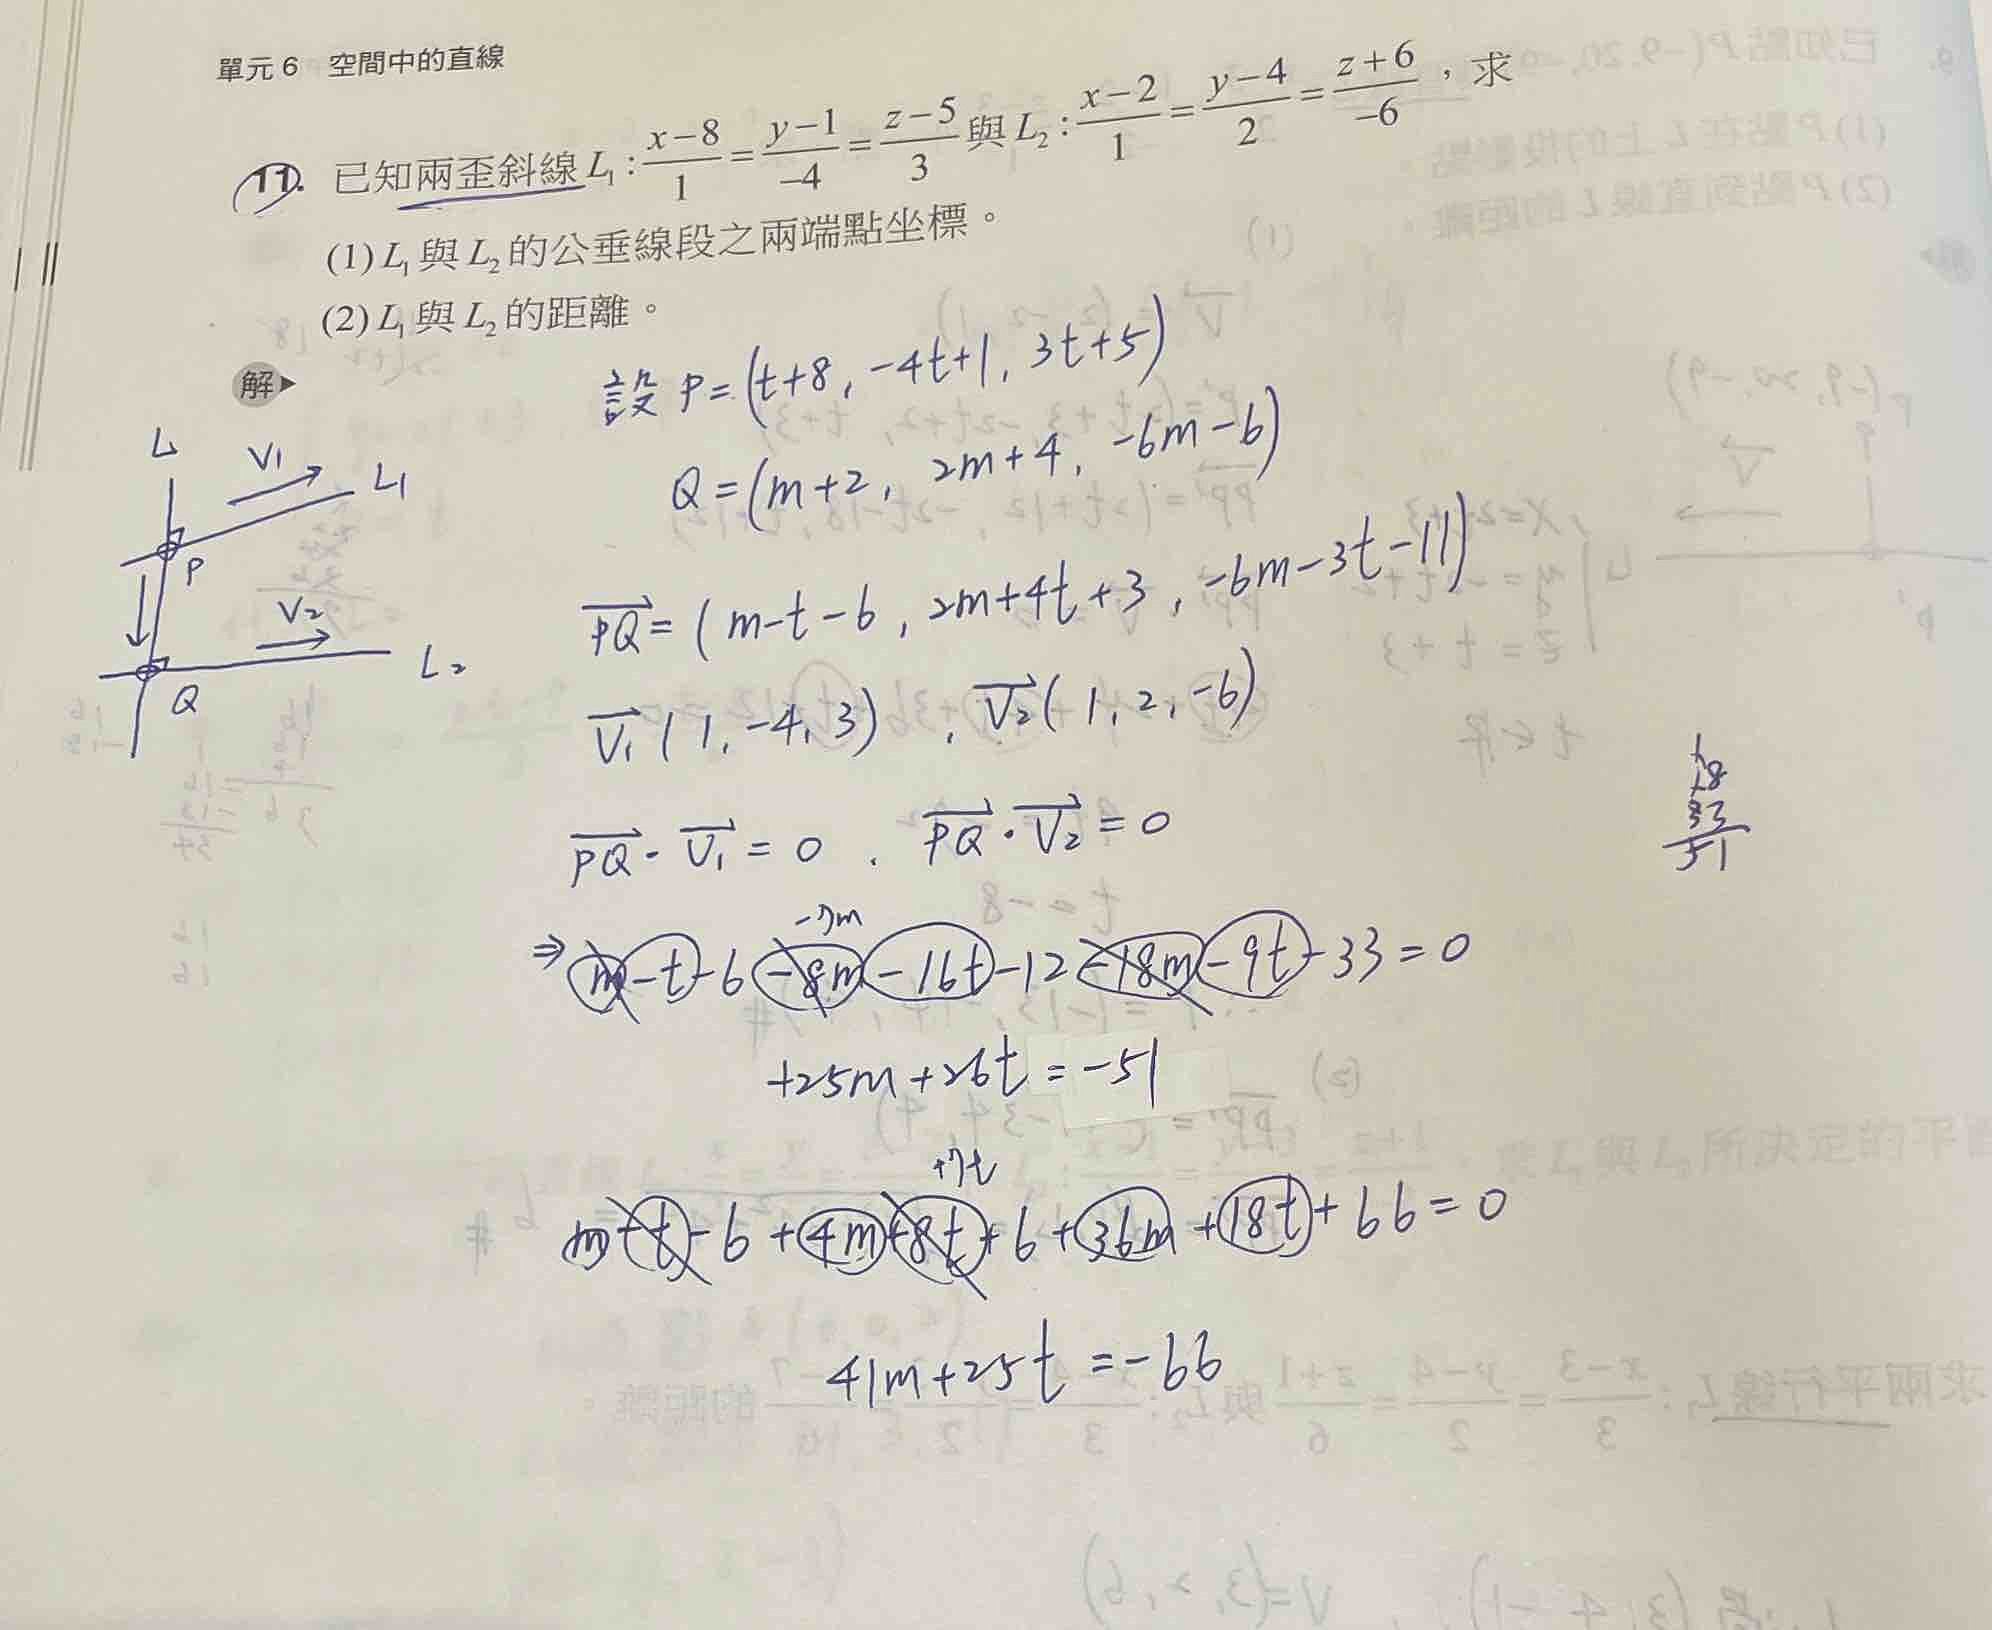 單元 6 空間中的直線
11. 已知兩歪斜線 L₁ : (x−8)/1 = (y−1)/−4 = (z−5)/3 與 L₂ : (x−2)/1 = (y−4)/2 = (z+6)/−6，求
(1) L₁ 與 L₂ 的公垂線段之兩端點坐標。
(2) L₁ 與 L₂ 的距離。
解
設 P=(t+8, -4t+1, 3t+5)
Q=(m+2, 2m+4, -6m-6)
L V₁ L₁
P
V₂ L₂
Q
PQ=(m-t-6, 2m+4t+3, -6m-3t-11)
V₁(1,-4,3), V₂(1,2,-6)
PQ·V₁=0, PQ·V₂=0
18
33
51
-7m
⇒ m-t-6-8m-16t-12-18m-9t-33=0
+25m+26t=-51
+7t
m-t-6+4m+8t+6+36m+18t+66=0
41m+25t=-66